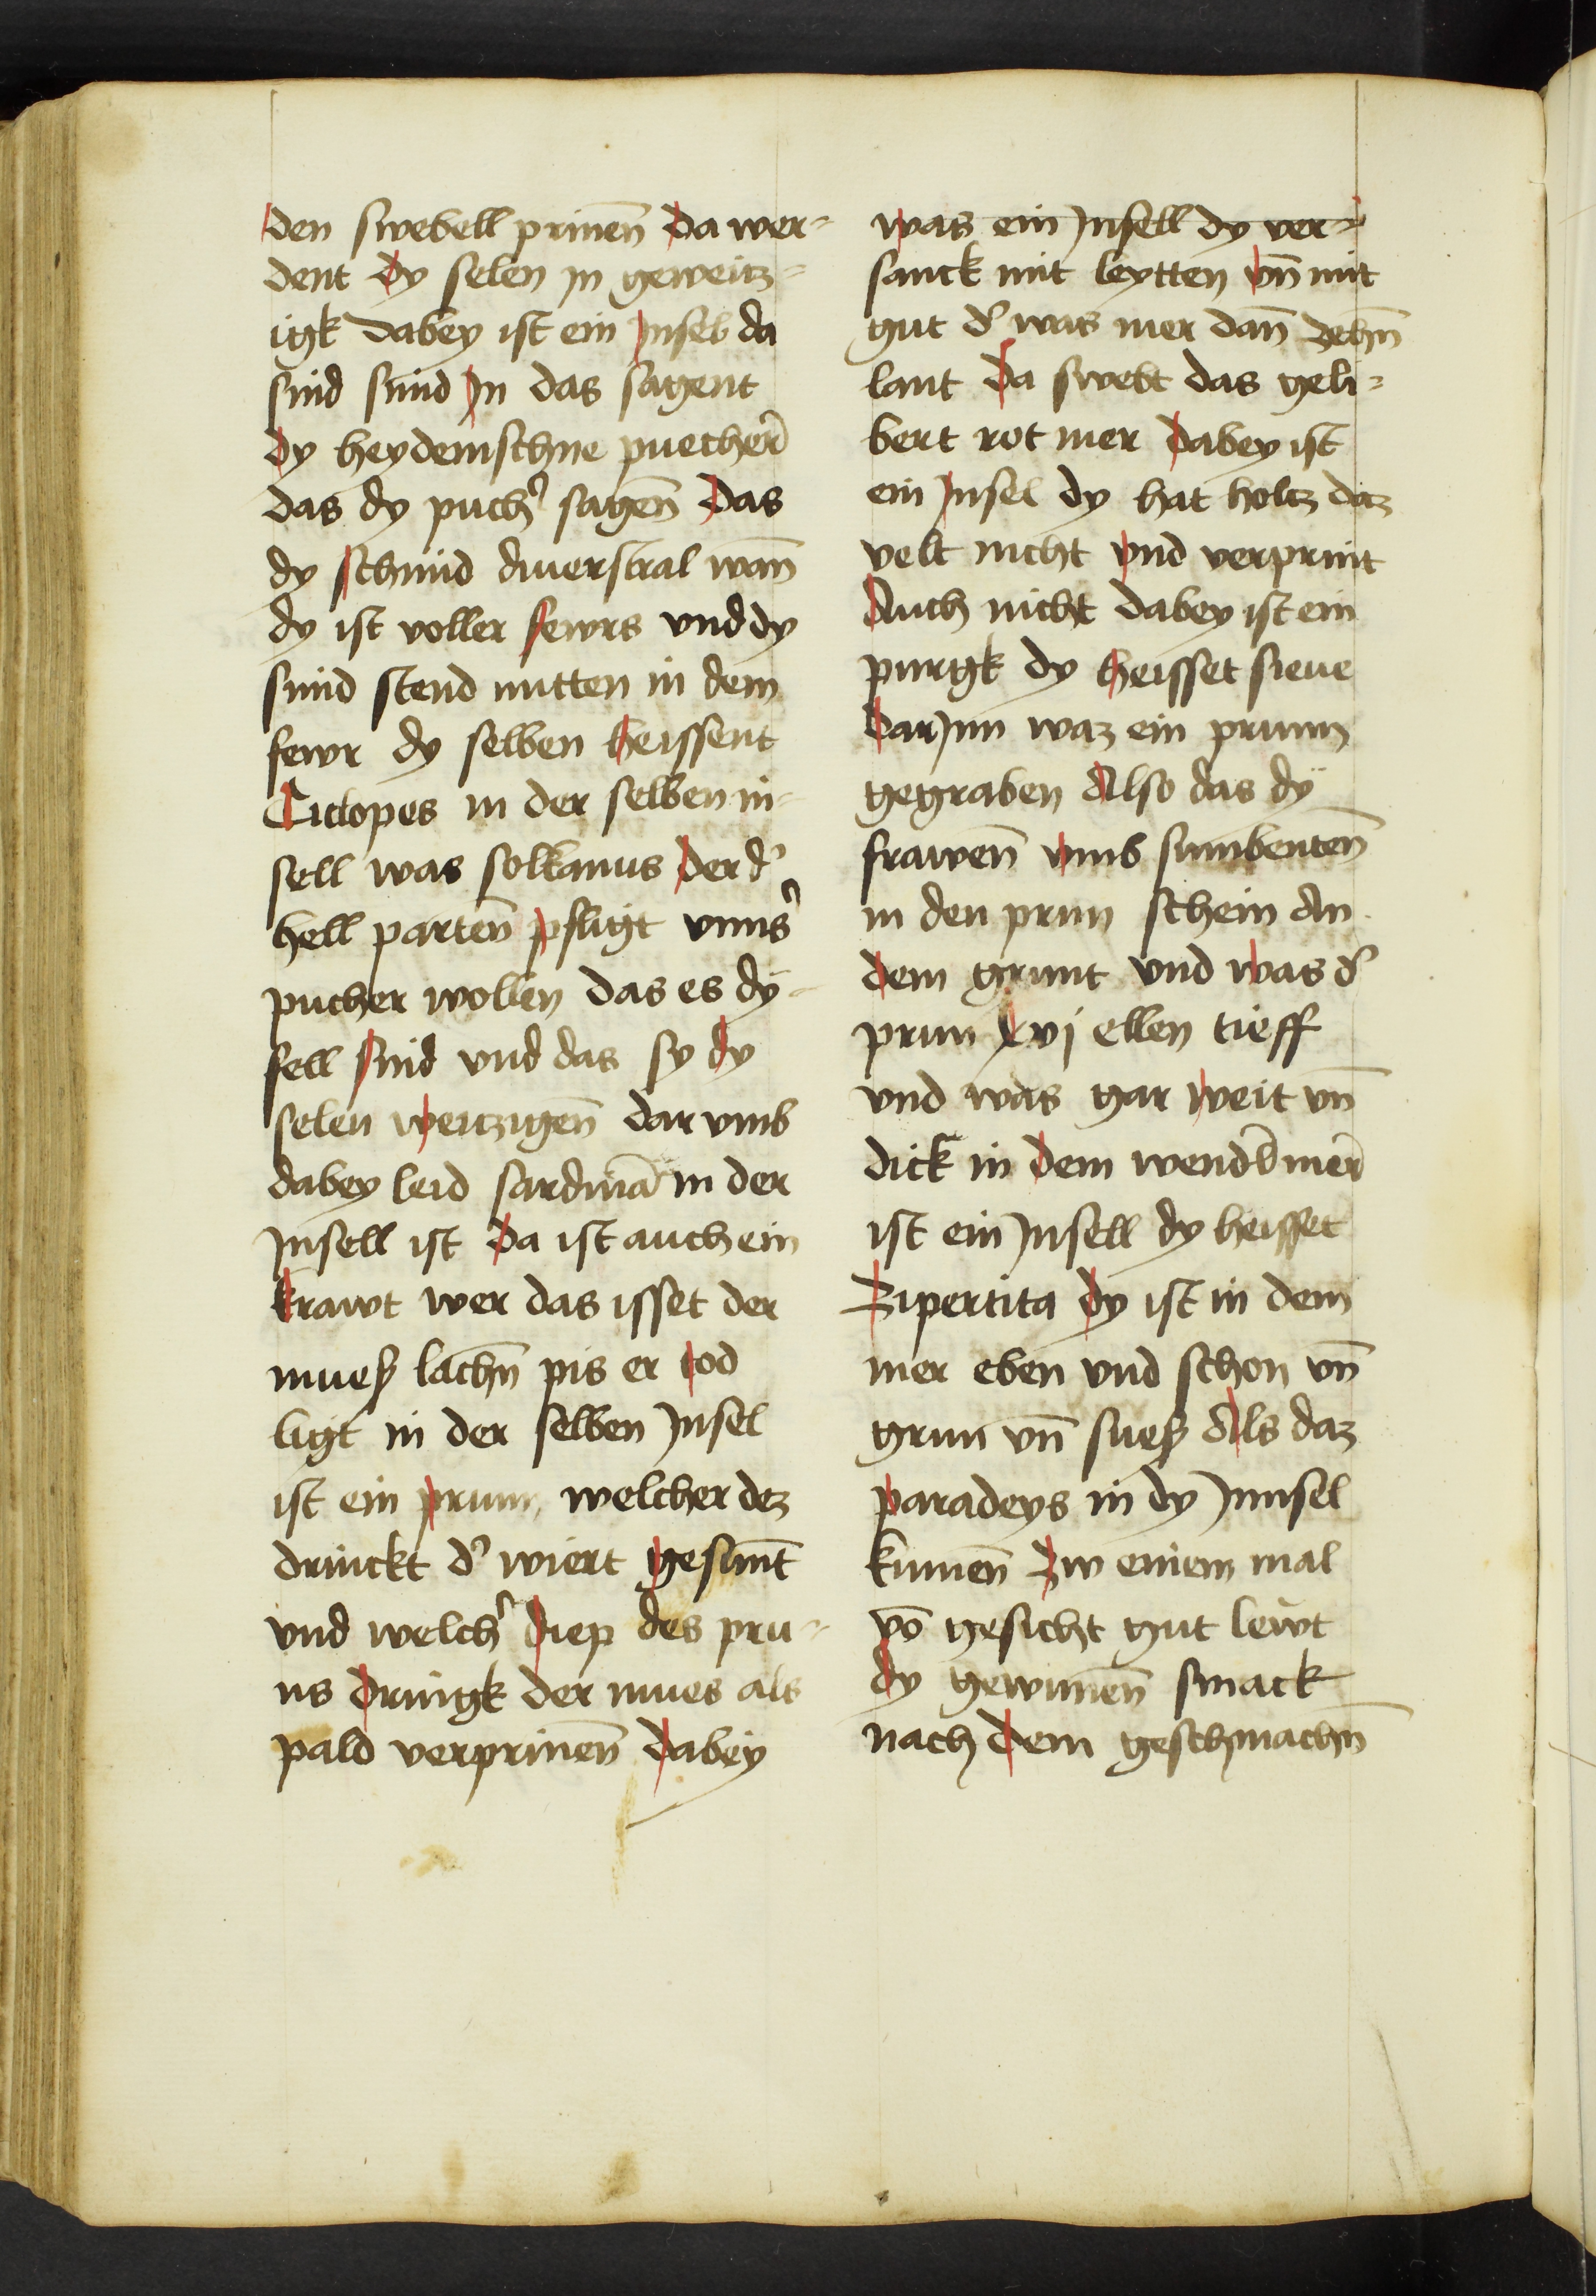 den swebell prinen̄ da wer=
dent dy selen in geweitz=
igk dabey ist ein Insel da
sind smid In das sagent
dy heydenischne puecher̄
das dy puch͛ sagen̄ das
dy schmid duuerstral wan̄
dy ist voller fewrs vnd dy
smid stend mitten in dem
fewr dy selben heissent
Ciclopes in der selben in=
sell was folkanus der d͛
hell parten̄ pfligt vnns͛
pucher wollen das es dÿ=
fell sind vnd das sy dy
selen weitzigen̄ dar vmb
dabey leid sardinia in der
Insell ist da ist auch ein
krawt wer das isset der
mueß lachn̄ pis er tod
ligt in der selben Insel
ist ein prunn welcher dez
drinckt d͛ wiert gesunt̄
vnd welch͛ diep des pru=
ns dringk der mues als
pald verprinen̄ dabeÿ
was ein Insell dy ver=
sanck mit leytten vn̄ mit
gut d͛ was mer dan̄
lant da swebt das geli=
bert rot mer dabey ist
ein Insel dy hat holtz daz
velt nicht vnd verprint
Auch nicht dabey ist ein
purgk dy heisset siene
dar Inn waz ein prunn
gegraben Also das dÿ
frawen̄ vmb sunibenten̄
in den prun schein An
dem grunt vnd was d͛
prun xvj ellen tieff
vnd was gar weit vn̄
dick in dem wendlmer̄
ist ein Insell dy heisset
Zipertita dy ist in dem
mer eben vnd schon vn̄
grun vn̄ sueß Als daz
paradeys in dy Innsel
kumen̄ Zw einem mal
vō gesicht gut lewt
dy gewunen̄ smack
nach dem geschmachn̄